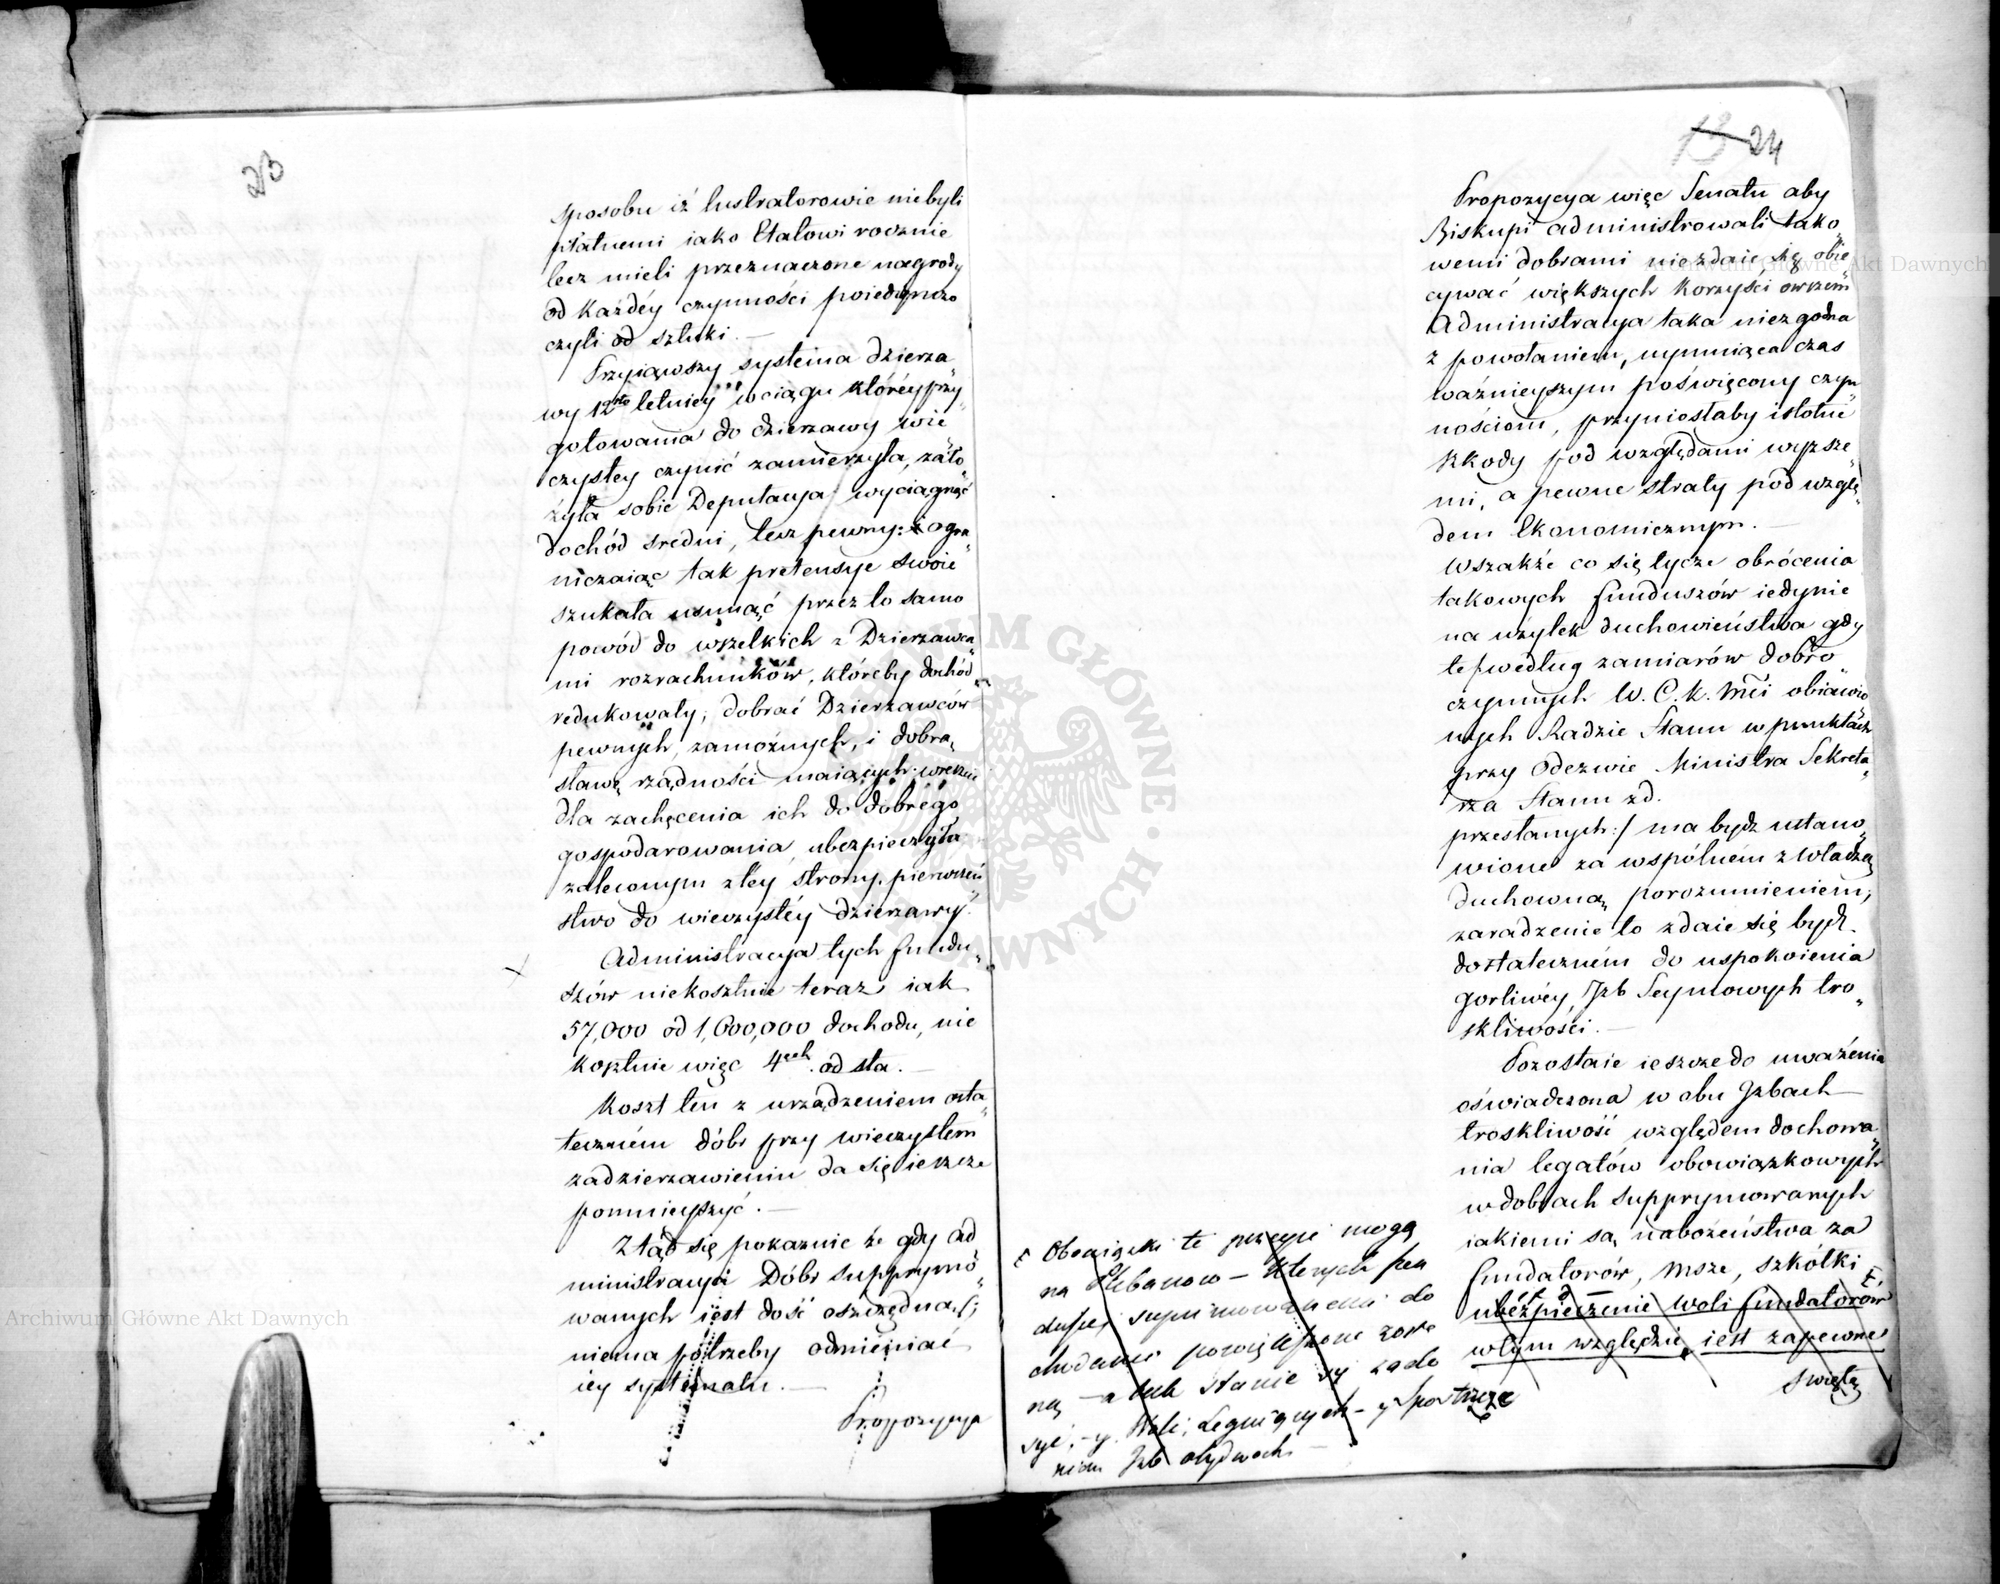 23
sposobu iż lustratorowie niebyli
płatnemi iako Etatowi rocznie
lecz mieli przeznaczone nagrody
od każdéy czynności poiedynczo
czyli od sztuki. —
Przyiąwszy systema dzierza„
wy 12sto letniey wciągu któréy przy„
gotowania do dzierzawy wie„
czystey czynić zamierzyła, zało„
żyła sobie Deputacya wyciągnąć
dochód sredni, lecz pewny: i ogra„
niczaiąc tak pretensye swoie
szukała usunąć przez to samo
powód do wszelkich z Dzierzawca„
mi rozrachunków, któreby dochód
redukowały; dobrać Dzierzawców
pewnych, zamożnych, i dobrą
sławę rządności maiących: wreszcie
dla zachęcenia ich do dobrégo
gospodarowania, ubezpieczyła
zaleconym z téy strony, pierwszeń„
stwo do wieczystéy dzierzawy.
Administracya tych fundu„
szów niekosztuie teraz iak
57,000 od 1,600,000 dochodu, nie
kosztuie więc 4ech. od sta. —
Koszt ten z urządzeniem osta„
teczném dóbr przy wieczystem
zadzierzawieniu da się ieszcze
pomnieyszyć. —
Ztąd się pokazuie że gdy Ad„
ministracya Dóbr supprymo„
wanych iest dość oszczędna,
niema potrzeby odmieniać
iey systematu. —
Propozycya
13 24
Propozycya więc Senatu aby
Biskupi administrowali tako„
wemi dobrami niezdaie się obie„
cywać większych korzyści owszem
Administracya taka niezgodna
z powołaniem, uymuiąca czas
ważnieyszym poświęcony czyn„
nościom, przyniosłaby istotne
szkody pod względami wyższe„
mi, a pewne straty pod wzglę„
dem Ekonomicznym. —
Wszakże co się tycze obrócenia
takowych funduszów iedynie
na użytek duchowieństwa gdy
te /według zamiarów dobro„
czynnych W. C. K. Mci obiawio„
nych Radzie Stanu w punktach
przy Odezwie Ministra Sekreta„
rza Stanu zd.
przesłanych:/ ma bydz ustano„
wione za wspólném z Władzą
duchowną porozumieniem,
zaradzenie to zdaie się bydź
dostateczném do uspokoienia
gorliwéy Izb Seymowych tro„
skliwości. —
Pozostaie ieszcze do uważenia
oświadczona w obu Izbach
troskliwość względem dochowa„
nia legatów obowiązkowych
w dobrach supprymowanych
iakiemi są nabożeństwa za
fundatorów, Msze, szkółki
ubezpieczenie woli fundatorów
wtym względzie, iest zapewne
świętą
Obowiązki te przeyść mogą
na Plebanow — których fun
dusze suprimowanemi do
chodami powiększone zosta
ną — a tak stanie się zado
syć, — y Woli, Leguiących — y spostrzeże
niom Izb obydwoch —
Archiwum Główne Akt Dawnych
Archiwum Główne Akt Dawnych
ARCHIWUM GŁÓWNE AKT DAWNYCH